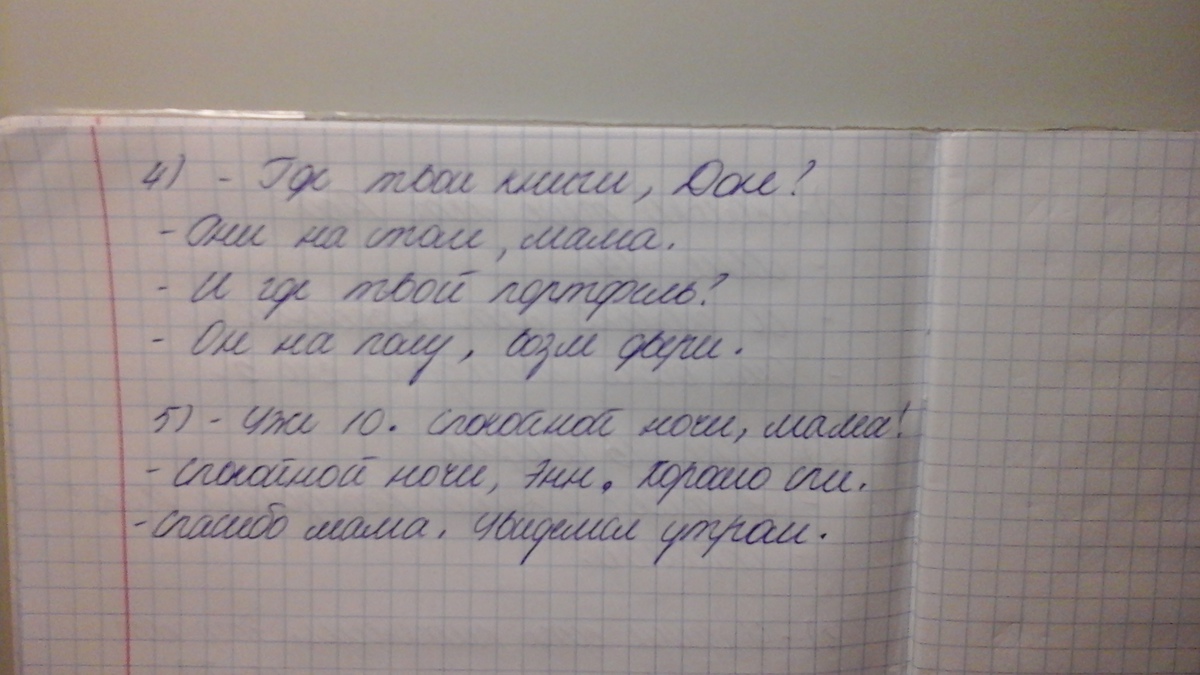 4) - Где твои книги, Дон?
- Они на столе, мама.
- И где твой портфель?
- Он на полу, возле двери.
5) - Уже 10. Спокойной ночи, мама!
- Спокойной ночи, Энн. Хорошо спи.
- Спасибо мама. Увидемся утром.